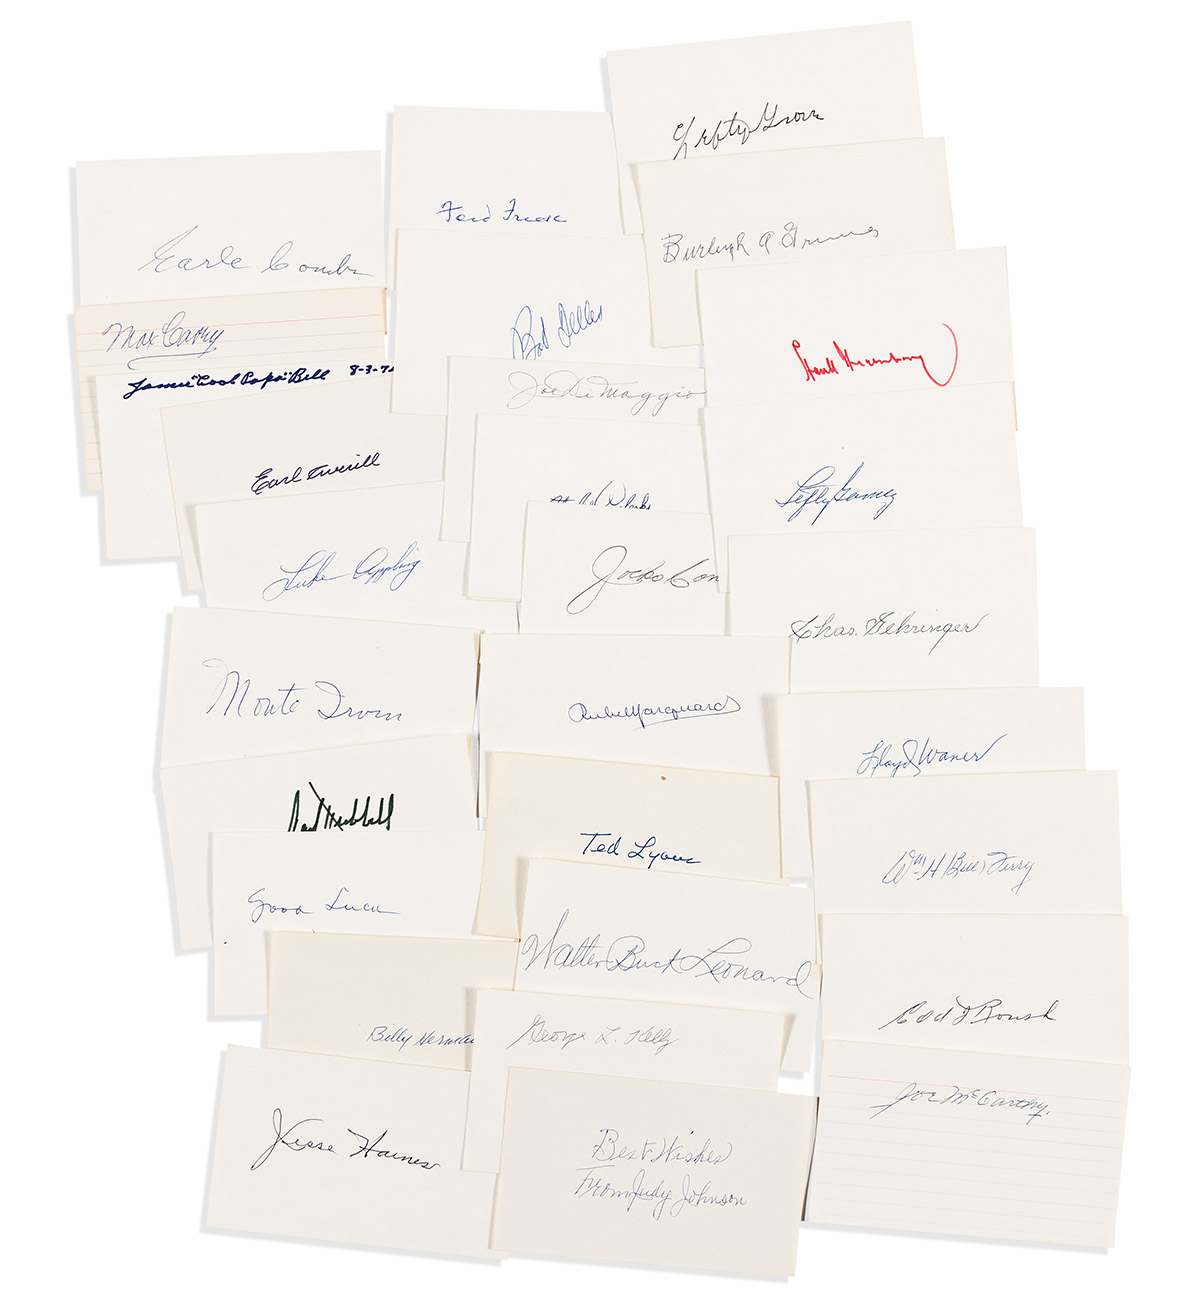 Lefty Grove
Ford Frick
Burleigh A Grimes
Earle Combs
Max Carey
Bob Feller
Hank Greenberg
James "Cool Papa" Bell 8-3-74
Joe Di Maggio
Earl Averill
Lefty Gomez
Luke Appling
Jocko Con
Chas. Gehringer
Monte Irvin
Rube Marquard
Lloyd Waner
Carl Hubbell
Ted Lyons
Wm H (Bill) Terry
Good Luck
Walter Buck Leonard
Edd J Roush
Billy Herman
George L. Kelly
Joe McCarthy.
Jesse Haines
Best Wishes
From Judy Johnson